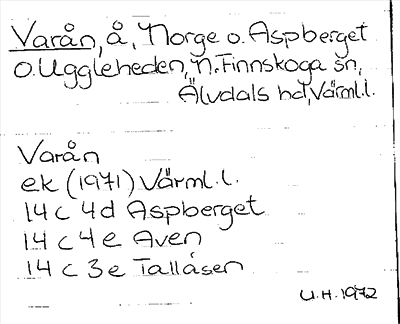 Varån, å, Norge o. Aspberget
o. Uggleheden, N. Finnskoga sn,
Älvdals hd, Värml.l.
Varån
ek (1971) Värml.l.
14 c 4d Aspberget
14 c 4e Aven
14 c 3e Tallåsen
U.H. 1972